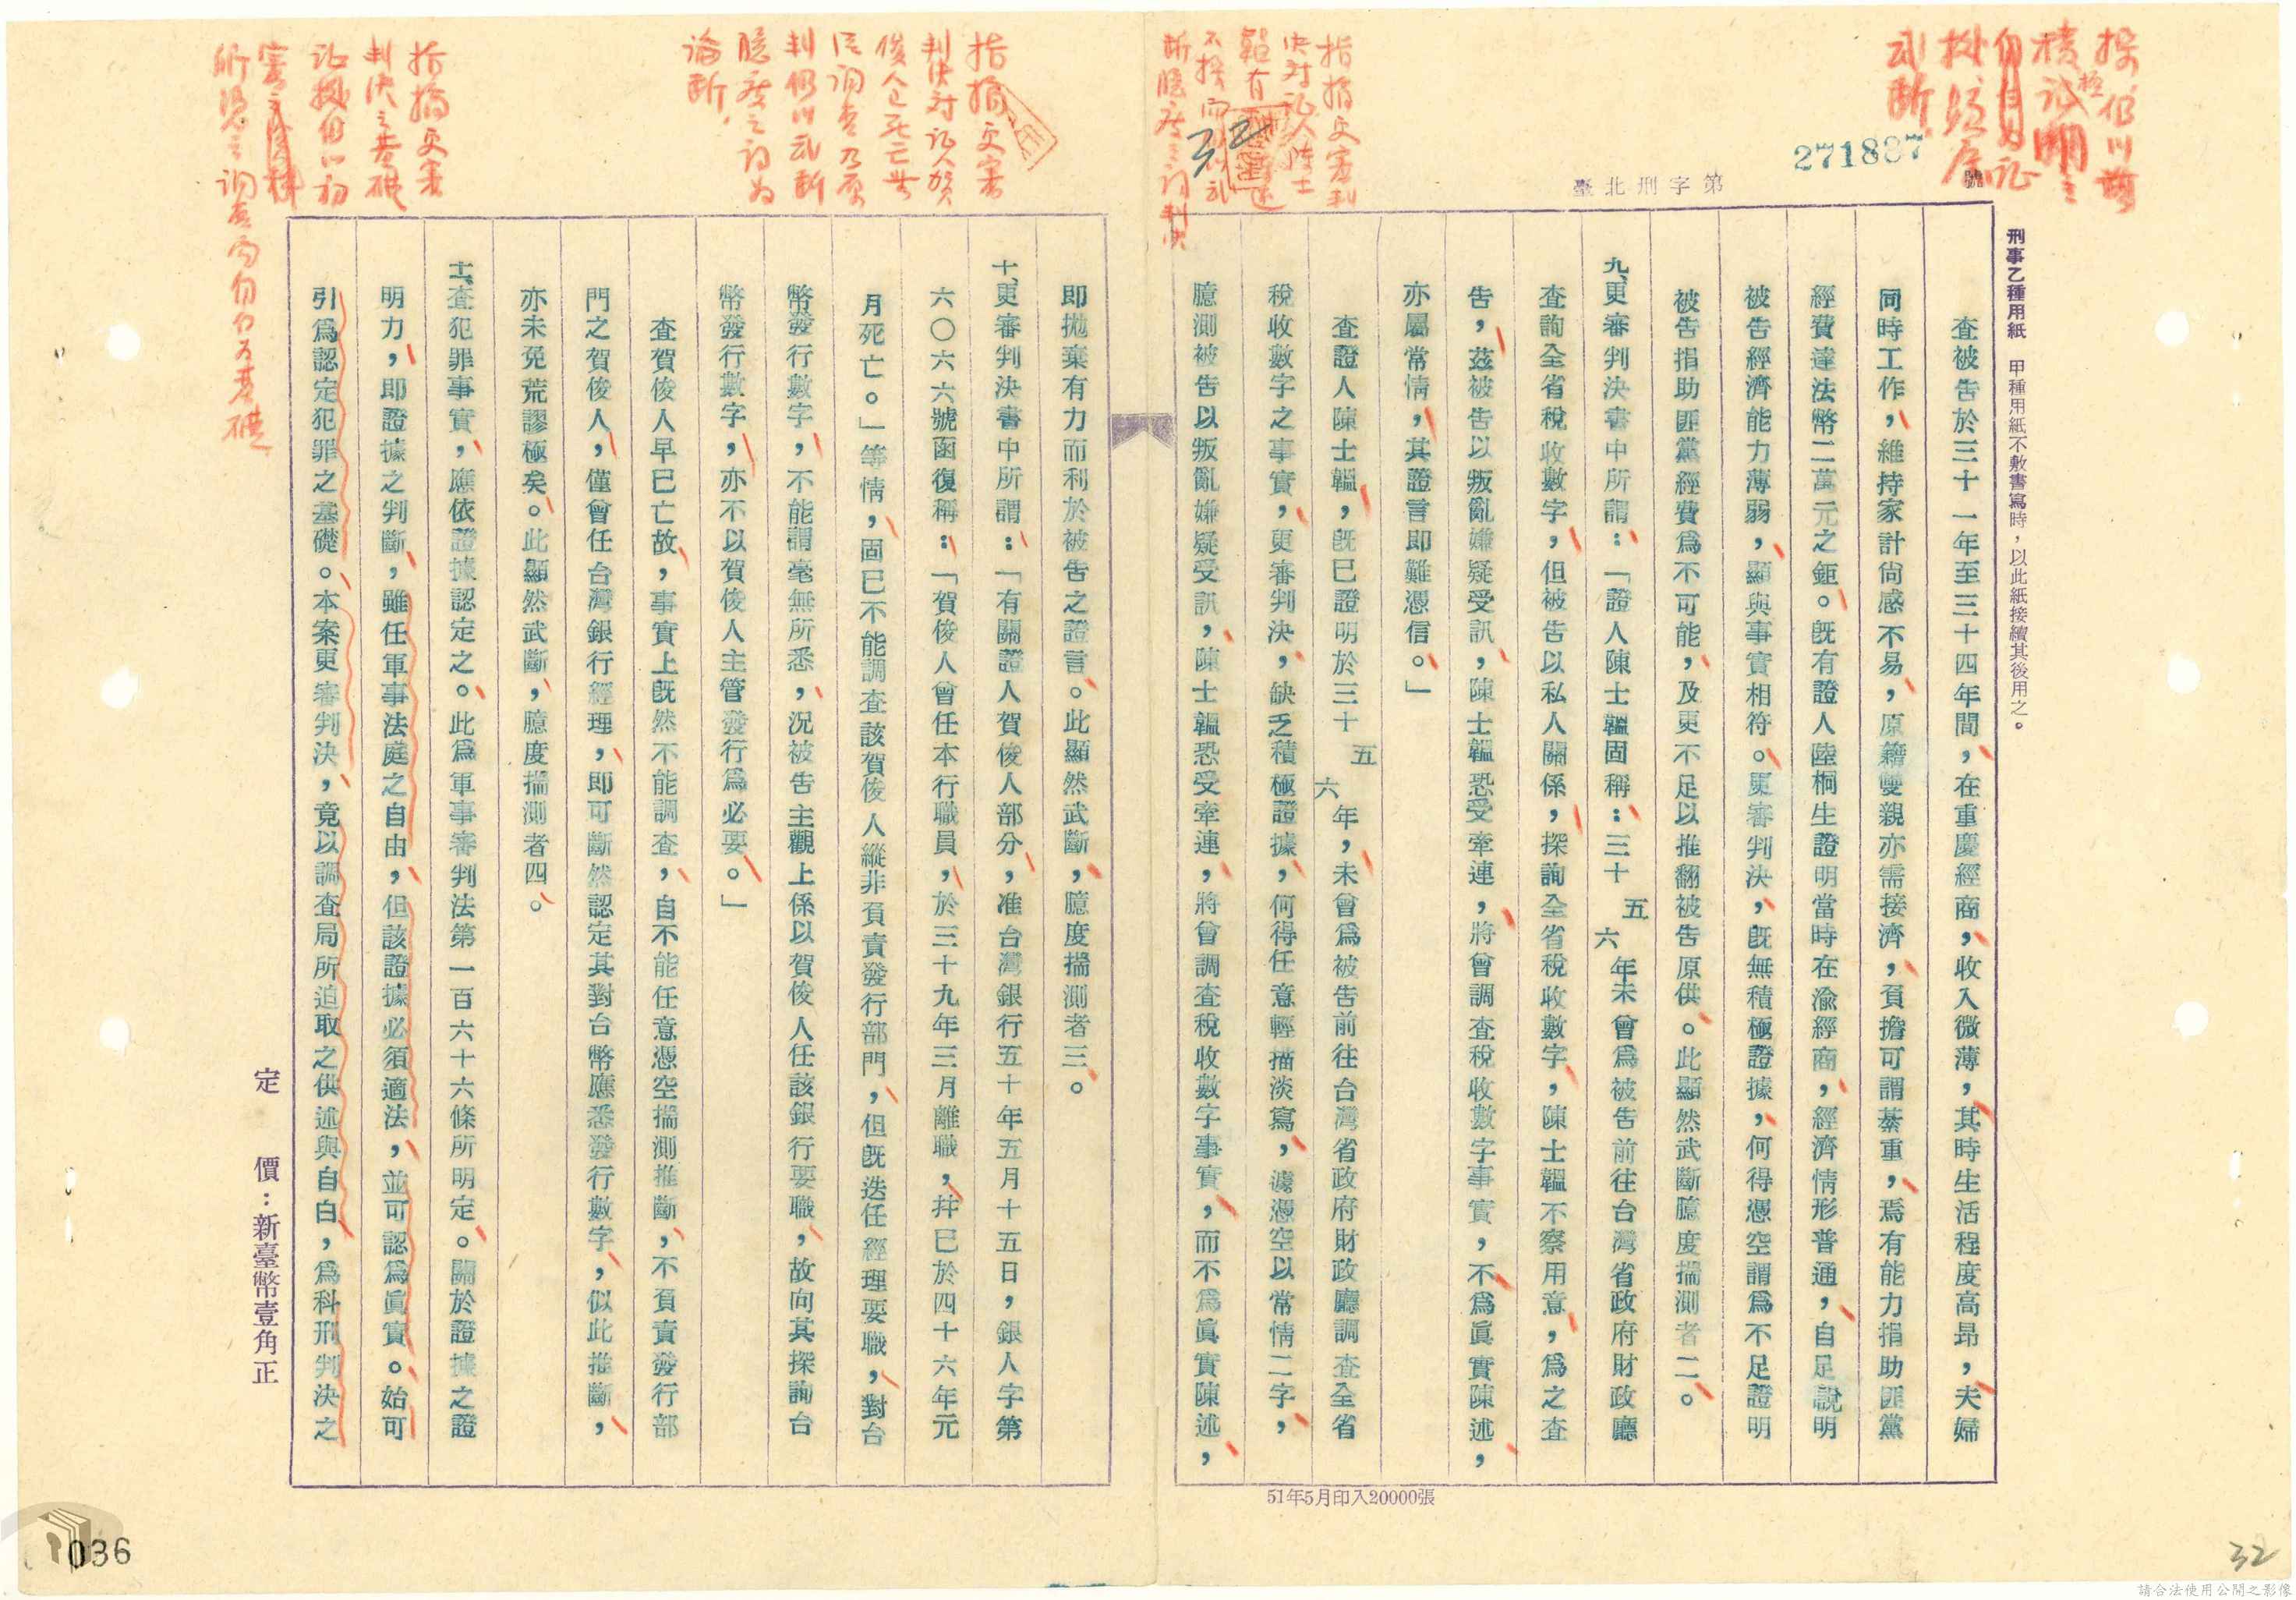 271887
臺北刑字第
號
刑事乙種用紙　甲種用紙不敷書寫時，以此紙接續其後用之。
查被告於三十一年至三十四年間，在重慶經商，收入微薄，其時生活程度高昂，夫婦
同時工作，維持家計尙感不易，原籍雙親亦需接濟，負擔可謂綦重，焉有能力捐助匪黨
經費達法幣二萬元之鉅。旣有證人陸桐生證明當時在渝經商，經濟情形普通，自足說明
被告經濟能力薄弱，顯與事實相符。更審判決，旣無積極證據，何得憑空謂爲不足證明
被告捐助匪黨經費爲不可能，及更不足以推翻被告原供。此顯然武斷臆度揣測者二。
九、更審判決書中所謂：「證人陳士韞固稱：三十五六年未曾爲被告前往台灣省政府財政廳
查詢全省稅收數字，但被告以私人關係，探詢全省稅收數字，陳士韞不察用意，爲之查
告，茲被告以叛亂嫌疑受訊，陳士韞恐受牽連，將曾調查稅收數字事實，不爲眞實陳述，
亦屬常情，其證言即難憑信。」
查證人陳士韞，旣已證明於三十五六年，未曾爲被告前往台灣省政府財政廳調查全省
稅收數字之事實，更審判決，缺乏積極證據，何得任意輕描淡寫，濾憑空以常情二字，
臆測被告以叛亂嫌疑受訊，陳士韞恐受牽連，將曾調查稅收數字事實，而不爲眞實陳述，
51年5月印入20000張
即拋棄有力而利於被告之證言。此顯然武斷，臆度揣測者三。
十、更審判決書中所謂：「有關證人賀俊人部分，准台灣銀行五十年五月十五日，銀人字第
六〇六六號函復稱：「賀俊人曾任本行職員，於三十九年三月離職，幷已於四十六年元
月死亡。」等情，固已不能調查該賀俊人縱非負責發行部門，但旣迭任經理要職，對台
幣發行數字，不能謂毫無所悉，況被告主觀上係以賀俊人任該銀行要職，故向其探詢台
幣發行數字，亦不以賀俊人主管發行爲必要。」
查賀俊人早已亡故，事實上旣然不能調查，自不能任意憑空揣測推斷，不負責發行部
門之賀俊人，僅曾任台灣銀行經理，即可斷然認定其對台幣應悉發行數字，似此推斷，
亦未免荒謬極矣。此顯然武斷，臆度揣測者四。
十一、查犯罪事實，應依證據認定之。此爲軍事審判法第一百六十六條所明定。關於證據之證
明力，即證據之判斷，雖任軍事法庭之自由，但該證據必須適法，並可認爲眞實。始可
引爲認定犯罪之基礎。本案更審判決，竟以調查局所迫取之供述與自白，爲科刑判決之
定　價：新臺幣壹角正
指摘更審
判決對証人賀
俊人已死亡無
從調查乃原
判仍以武斷
臆度之詞爲
論斷
指摘更審
判決之基礎
036
32
請合法使用公開之影像